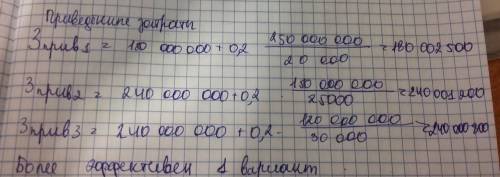 Приведенные затраты
Зприв1 = 180 000 000 + 0,2 250 000 000 / 20 000 = 180 002 500
Зприв2 = 240 000 000 + 0,2 150 000 000 / 25000 = 240 001 200
Зприв3 = 240 000 000 + 0,2. 120 000 000 / 30 000 = 240 000 800
Более эффективен 1 вариант